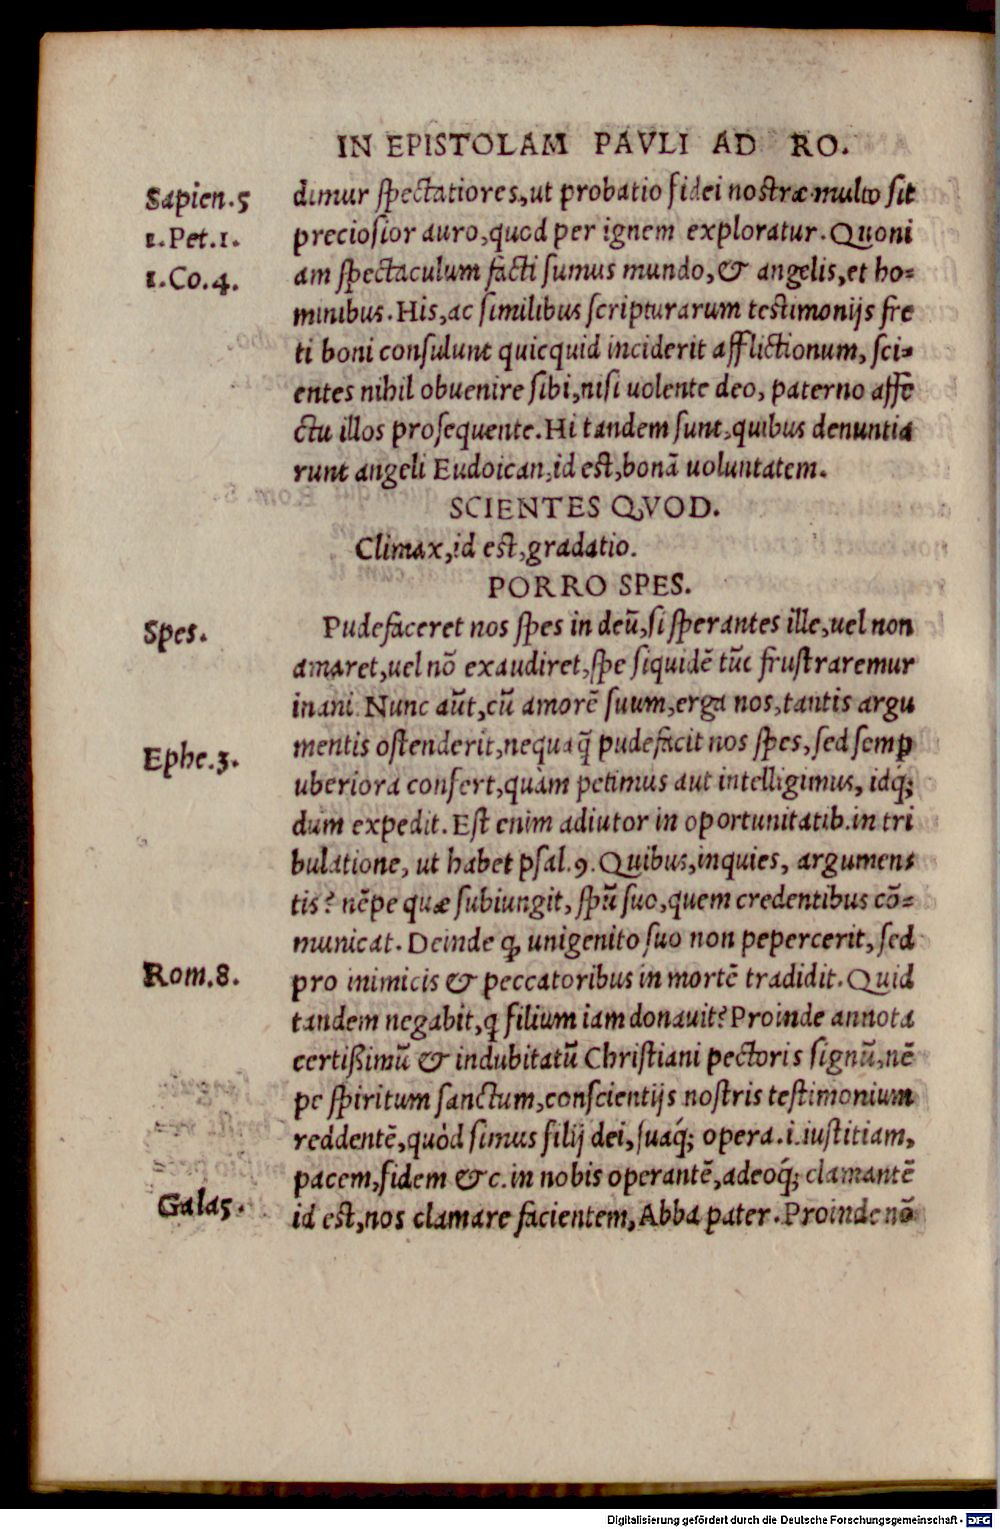 IN EPISTOLAM PAVLI AD RO.
Sapien.5 dimur spectatiores, ut probatio fidei nostræ multo sit
1.Pet.1. preciosior auro, quod per ignem exploratur. Quoni
1.Co.4. am spectaculum facti sumus mundo, & angelis, et ho-
minibus. His, ac similibus scripturarum testimonijs fre
ti boni consulunt quicquid inciderit afflictionum, sci-
entes nihil obuenire sibi, nisi uolente deo, paterno affe
ctu illos prosequente. Hi tandem sunt, quibus denuntia
runt angeli Eudoican, id est, bonā uoluntatem.
SCIENTES QVOD.
Climax, id est, gradatio.
PORRO SPES.
Spes. Pudefaceret nos spes in deū, si sperantes ille, uel non
amaret, uel nō exaudiret, spe siquidē tūc frustraremur
inani. Nunc aūt, cū amorē suum, erga nos, tantis argu
mentis ostenderit, nequaq̃ pudefacit nos spes, sed semꝑ
Ephe.3. uberiora confert, quàm petimus aut intelligimus, idq́;
dum expedit. Est enim adiutor in oportunitatib. in tri
bulatione, ut habet psal.9. Quibus, inquies, argumen-
tis? nēpe quæ subiungit, spū suo, quem credentibus cō-
municat. Deinde ꝙ unigenito suo non pepercerit, sed
Rom.8. pro inimicis & peccatoribus in mortē tradidit. Quid
tandem negabit, ꝙ filium iam donauit? Proinde annota
certißimū & indubitatū Christiani pectoris signū, nē
pe spiritum sanctum, conscientijs nostris testimonium
reddentē, quòd simus filij dei, suaq́; opera .i. iustitiam,
pacem, fidem &c. in nobis operantē, adeoq́; clamantē
Gala5. id est, nos clamare facientem, Abba pater. Proinde nō
Digitalisierung gefördert durch die Deutsche Forschungsgemeinschaft - DFG